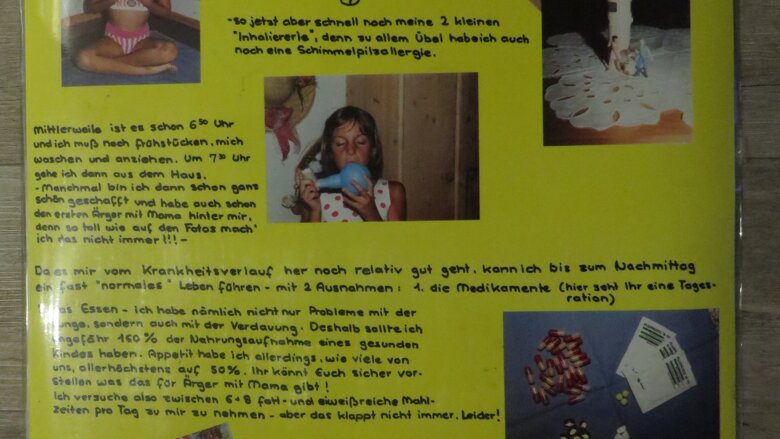 -So jetzt aber schnell noch meine 2 kleinen
"Inhaliererle", denn zu allem Übel habe ich auch
noch eine Schimmelpilzallergie.
Mittlerweile ist es schon 6⁵⁰ Uhr
und ich muß noch frühstücken, mich
waschen und anziehen. Um 7³⁰ Uhr
gehe ich dann aus dem Haus.
-Manchmal bin ich dann schon ganz
schön geschafft und habe auch schon
den ersten Ärger mit Mama hinter mir,
denn so toll wie auf den Fotos mach'
ich das nicht immer!!!-
Da es mir vom Krankheitsverlauf her noch relativ gut geht, kann ich bis zum Nachmittag
ein fast "normales" Leben führen - mit 2 Ausnahmen: 1. die Medikamente (hier seht Ihr eine Tages-
ration)
das Essen - ich habe nämlich nicht nur Probleme mit der
Lunge, sondern auch mit der Verdauung. Deshalb sollte ich
ungefähr 160% der Nahrungsaufnahme eines gesunden
Kindes haben. Appetit habe ich allerdings, wie viele von
uns, allerhöchstens auf 50%. Ihr könnt Euch sicher vor-
stellen was das für Ärger mit Mama gibt!
Ich versuche also zwischen 6+8 fett- und eiweißreiche Mahl-
zeiten pro Tag zu mir zu nehmen - aber das klappt nicht immer. Leider!